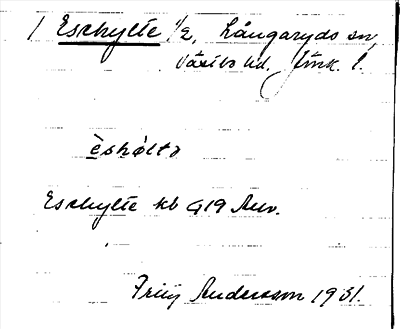 1 Eschylte 1/2, Långaryds sn,
Västbo hd. Jönk. l.
èshøltə
Eschylte kb G19 Anv.
Andersson 1931.